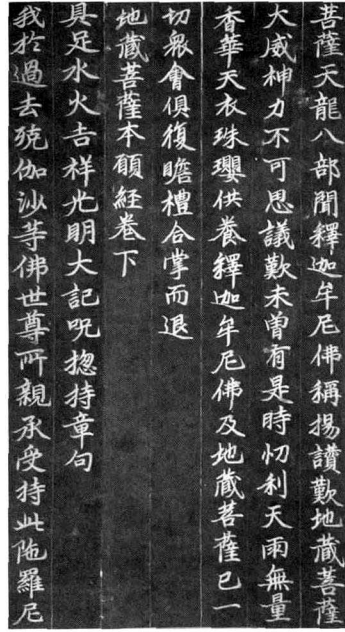 菩薩天龍八部聞釋迦牟尼佛稱揚讃歎地藏菩薩
大威神力不可思議歎未曽有是時忉利天雨無量
香華天衣珠瓔供養釋迦牟尼佛及地藏菩薩已一
切衆會俱復瞻禮合掌而退
地藏菩薩本願經卷下
具足水火吉祥光明大記呪揔持章句
我於過去殑伽沙等佛世尊所親承受持此陁羅尼